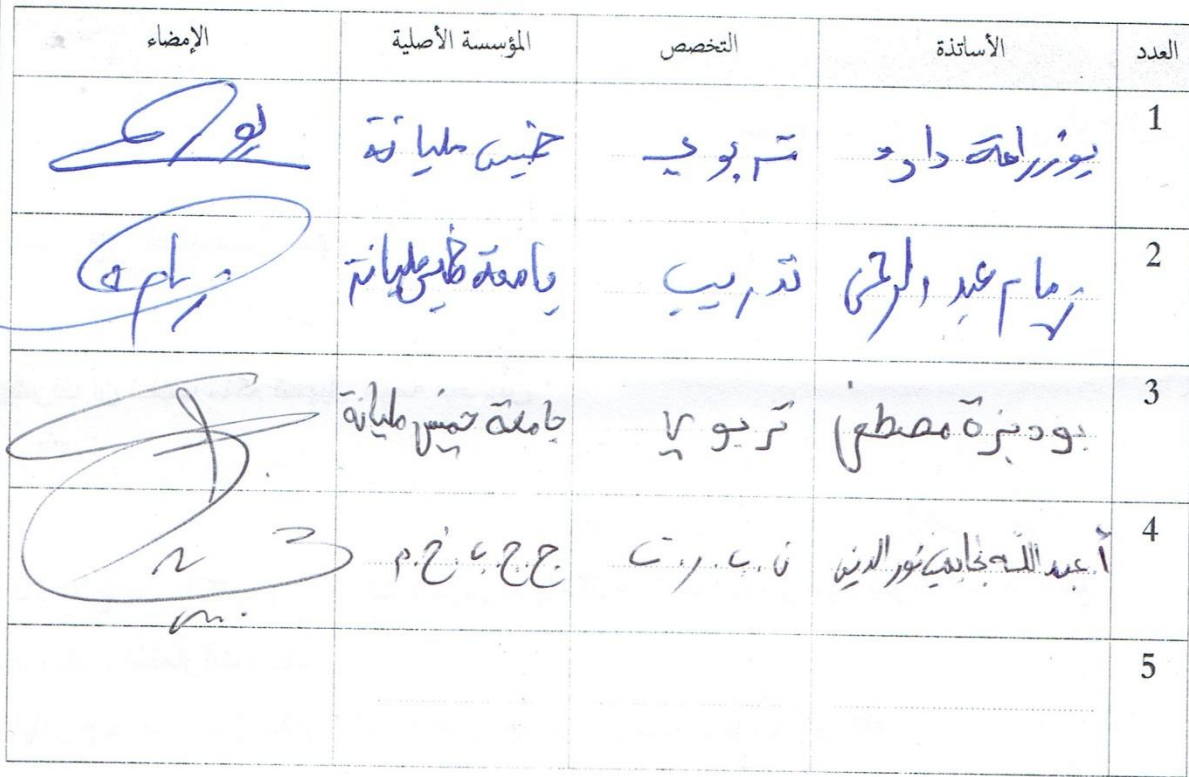 العدد الأساتذة التخصص المؤسسة الأصلية الإمضاء
1 داود تربوي خميس مليانة
2 عبد الرحمن تدريب جامعة خميس مليانة
3 بودبزة مصطفى تربوي جامعة خميس مليانة
4 أ عبد الله نور الدين ن.ب.ر.ت ج.ج.ب.خ.م
5